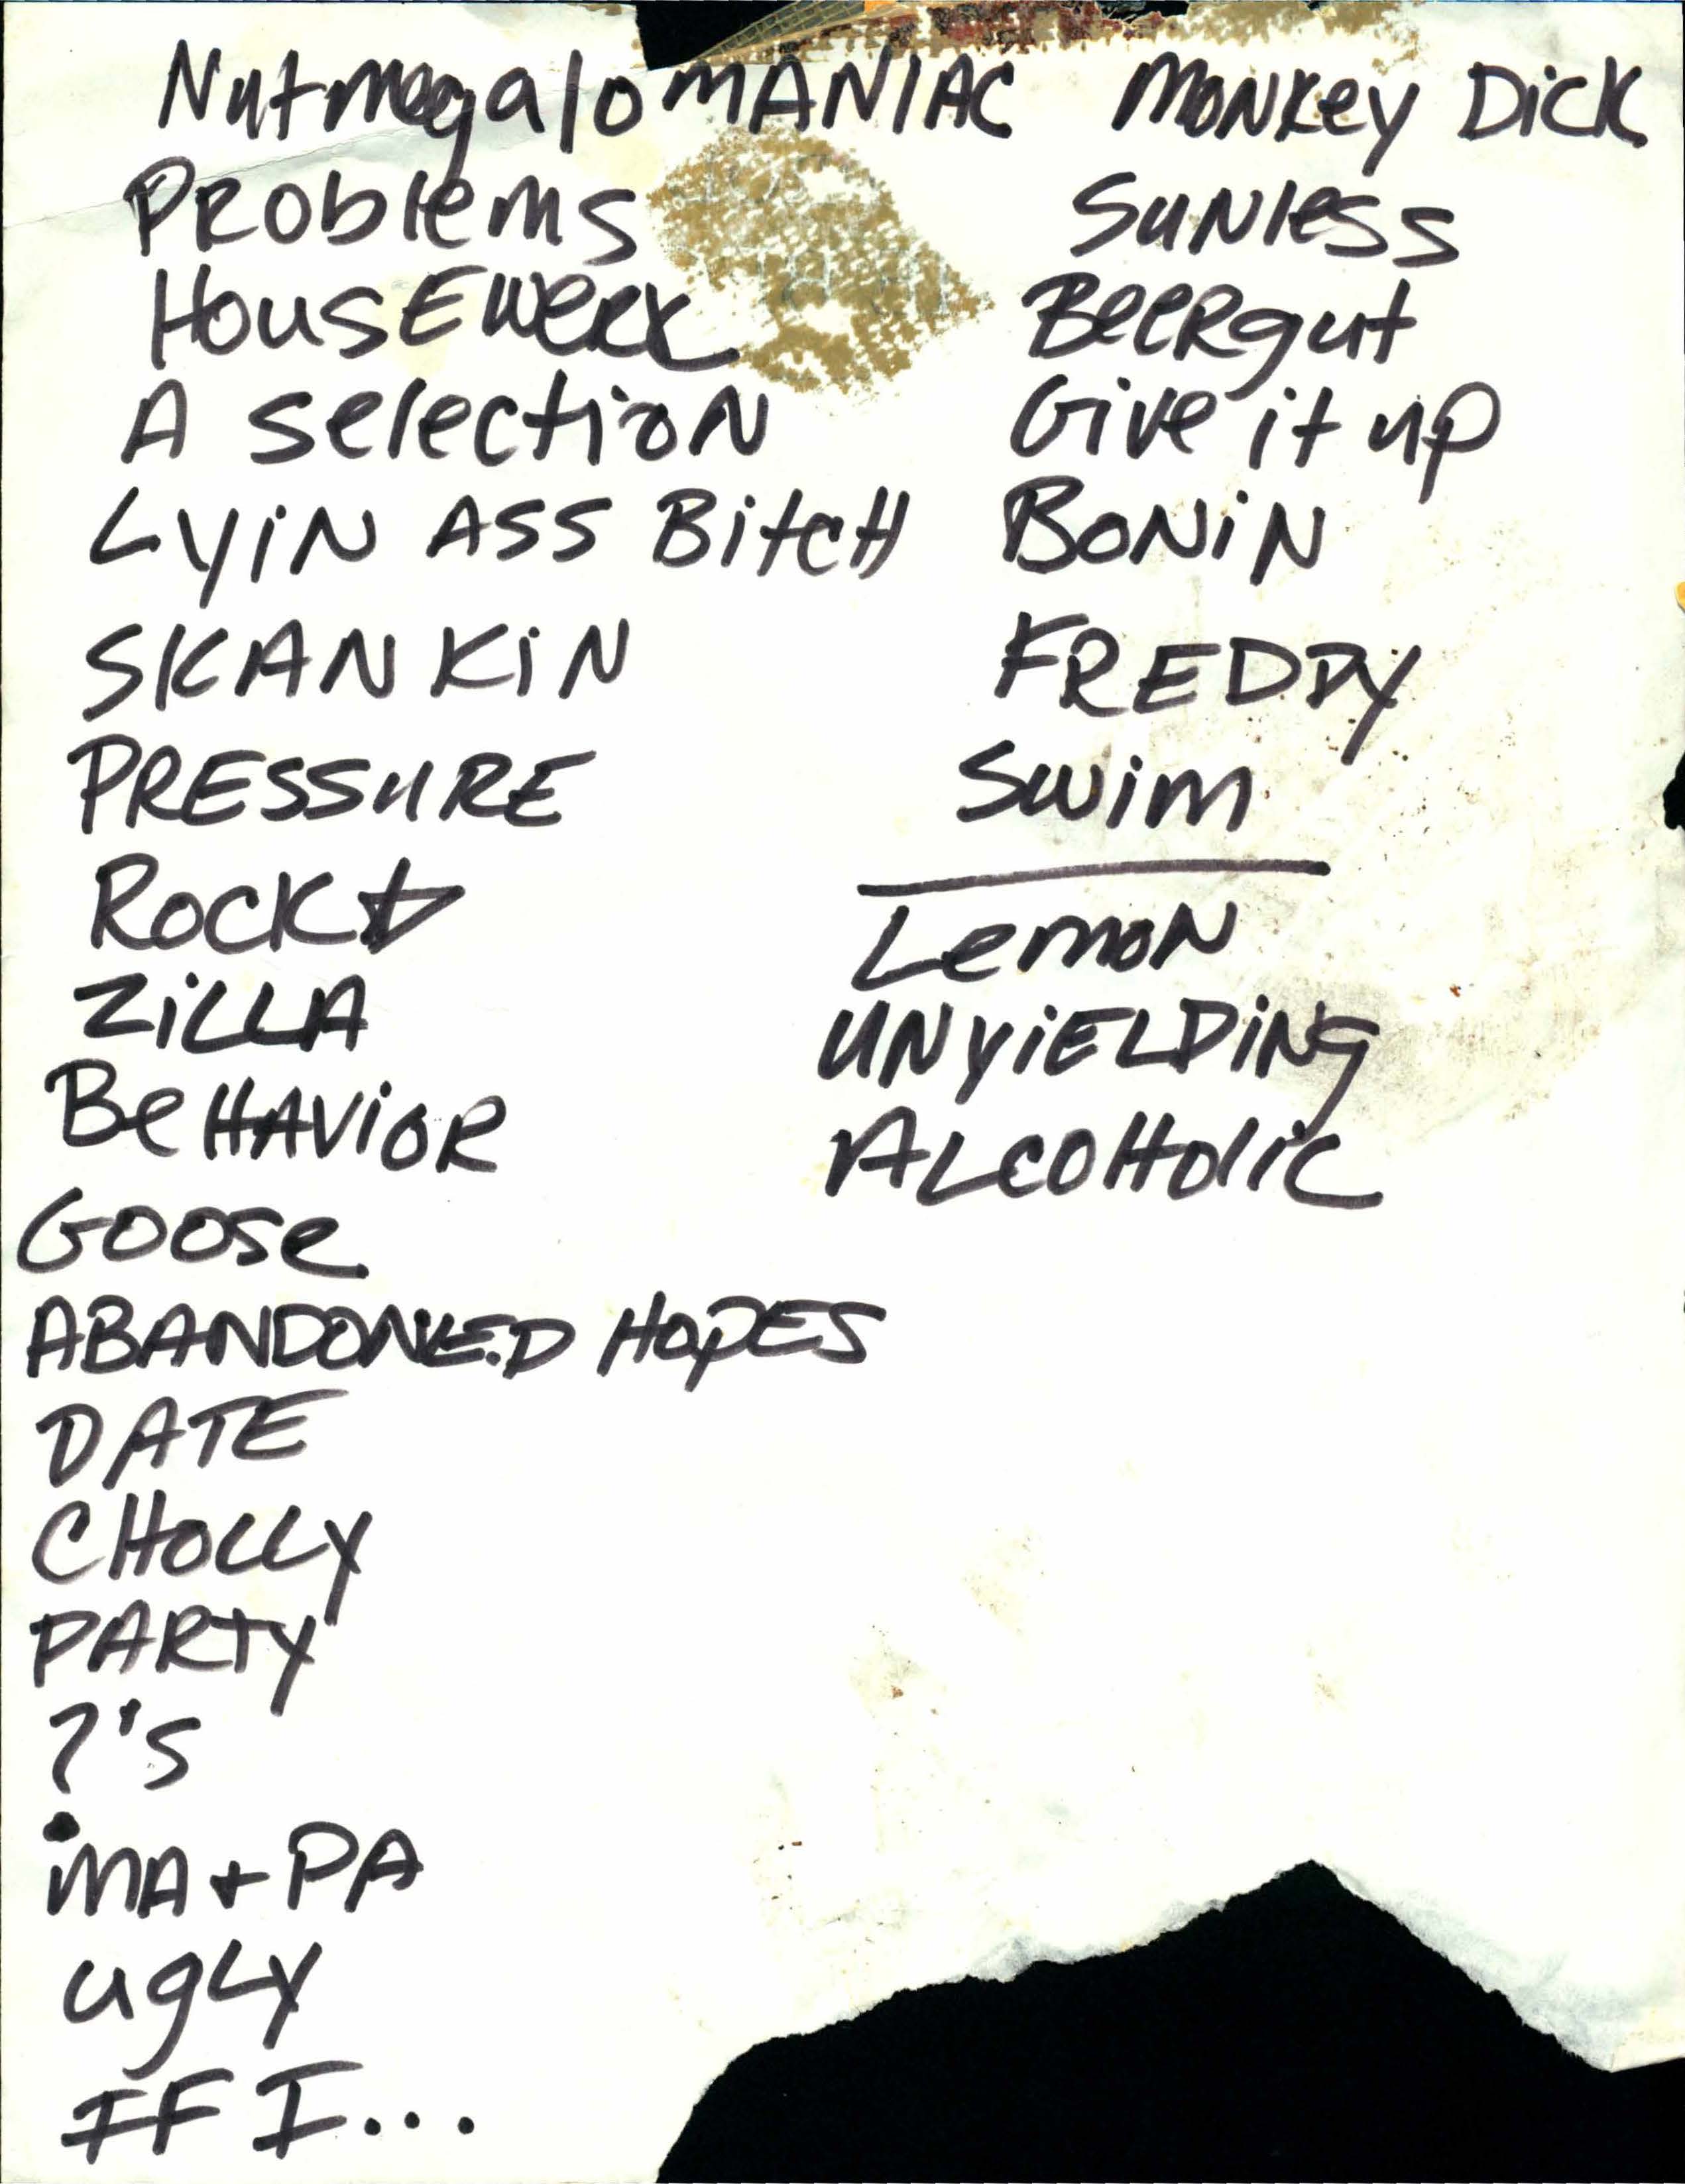 NutmegaloMANIAC
PRoblems
HousEwerk
A selectioN
LyiN ASS BitcH
SKANKiN
PRESSuRE
RocK
ZiLLA
BeHAVioR
GOOSe
ABANDONED HopES
DATE
CHOLLY
PARTY
?'s
MA + PA
ugLy
IF I...
MoNkey DicK
SuNless
BeeRgut
Give it up
BoNiN
FREDDY
Swim
LemoN
UNyiELDiNg
ALcoHolic